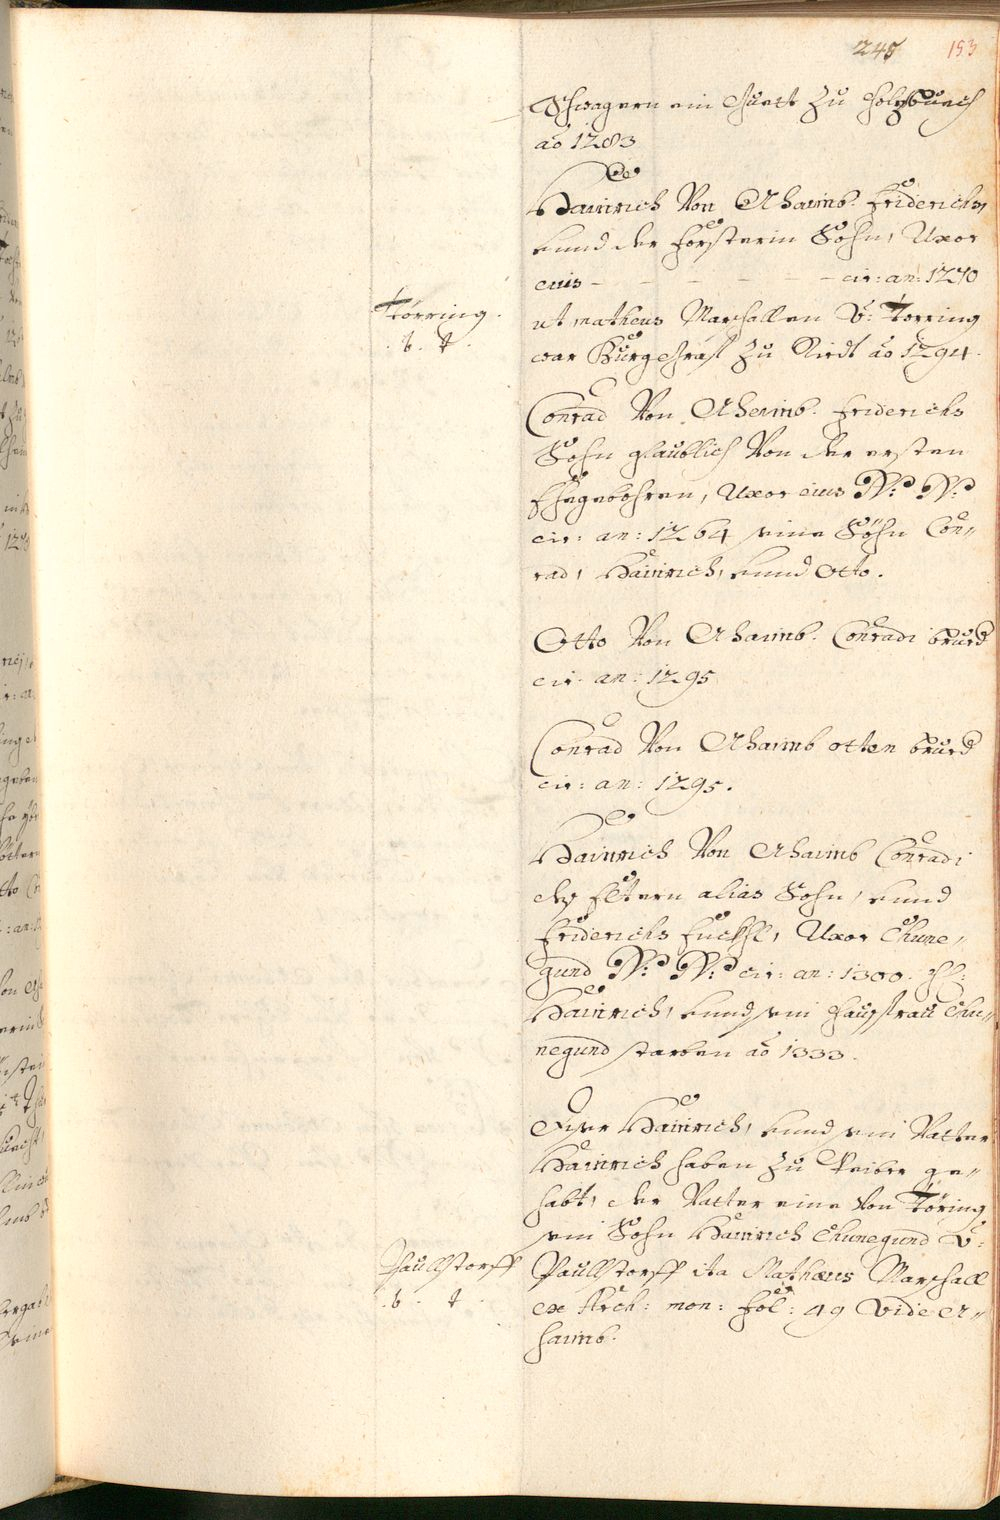 245 153
Schwagern ein Guett zu Holzbuech
ao 1283
Hainrich Von Ahaimb. Friderichs
vnnd der Forsterin Sohn, Uxor
eius - - - - - - cir: an: 1270
Törring.
. b. t.
ut Matheus Marschallen V: Torring
war Burggraf zu Riedt ao 1294.
Conrad Von Ahaimb. Friderichs
Sohn glaublich Von der ersten
Ehegebohren, Uxor eius N: N:
cir: an: 1264 seine Söhn Con„
rad, Hainrich, vnnd Otto.
Otto Von Ahaimb. Conradi Brued
cir. an: 1295
Conrad Von Ahaimb otten Brued
cir: an: 1295.
Hainrich Von Ahaimb Conradi
des Eltern alias Sohn, vnnd
Friderichs Enckhl, Uxor Chune„
gund N: N: cir: an: 1300.
Hainrich, vnnd sein Hausfrau Chu„
negund starben ao 1333.
Diser Hainrich, vnnd sein Vatter
Hainrich haben zu Weiber ge„
habt, der Vatter eine Von Töring
sein Sohn Hainrich Chunegund V:
Paullstorff
. b. t.
Paullstorff ita Matheus Marschall
ex Arch: mon: fol: 49 Vide A„
haimb.